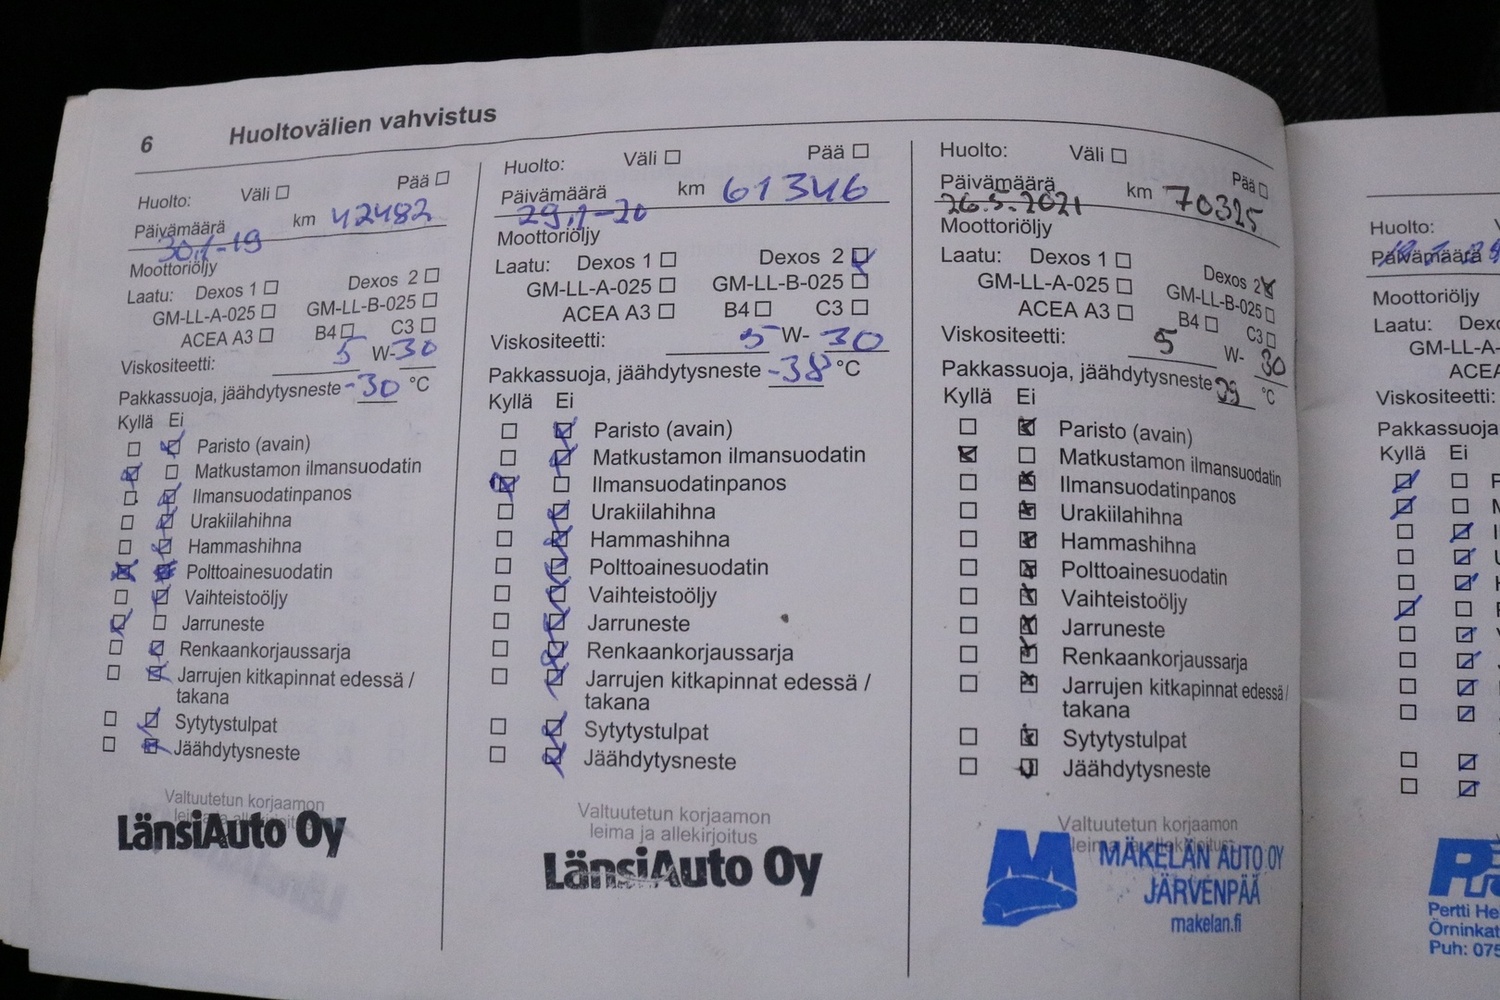 6 Huoltovälien vahvistus
Huolto: Väli Pää
Päivämäärä km 42482
30.1-19
Moottoriöljy
Laatu: Dexos 1 Dexos 2
GM-LL-A-025 GM-LL-B-025
ACEA A3 B4 C3
Viskositeetti: 5 W-30
Pakkassuoja, jäähdytysneste -30 °C
Kyllä Ei
Paristo (avain)
Matkustamon ilmansuodatin
Ilmansuodatinpanos
Urakiilahihna
Hammashihna
Polttoainesuodatin
Vaihteistoöljy
Jarruneste
Renkaankorjaussarja
Jarrujen kitkapinnat edessä /
takana
Sytytystulpat
Jäähdytysneste
Valtuutetun korjaamon
LänsiAuto Oy
Huolto: Väli Pää
Päivämäärä km 61346
29.1-20
Moottoriöljy
Laatu: Dexos 1 Dexos 2
GM-LL-A-025 GM-LL-B-025
ACEA A3 B4 C3
Viskositeetti: 5 W- 30
Pakkassuoja, jäähdytysneste -38 °C
Kyllä Ei
Paristo (avain)
Matkustamon ilmansuodatin
Ilmansuodatinpanos
Urakiilahihna
Hammashihna
Polttoainesuodatin
Vaihteistoöljy
Jarruneste
Renkaankorjaussarja
Jarrujen kitkapinnat edessä /
takana
Sytytystulpat
Jäähdytysneste
Valtuutetun korjaamon
leima ja allekirjoitus
LänsiAuto Oy
Huolto: Väli Pää
Päivämäärä km 70325
26.5.2021
Moottoriöljy
Laatu: Dexos 1 Dexos 2
GM-LL-A-025 GM-LL-B-025
ACEA A3 B4 C3
Viskositeetti: 5 W- 30
Pakkassuoja, jäähdytysneste °C
Kyllä Ei
Paristo (avain)
Matkustamon ilmansuodatin
Ilmansuodatinpanos
Urakiilahihna
Hammashihna
Polttoainesuodatin
Vaihteistoöljy
Jarruneste
Renkaankorjaussarja
Jarrujen kitkapinnat edessä /
takana
Sytytystulpat
Jäähdytysneste
Valtuutetun korjaamon
leima ja allekirjoitus
M MÄKELÄN AUTO OY
JÄRVENPÄÄ
makelan.fi
Huolto:
Päivämäärä
Moottoriöljy
Laatu: Dexo
GM-LL-A-
ACEA
Viskositeetti:
Pakkassuoja
Kyllä Ei
Pertti He
Örninkat
Puh: 075